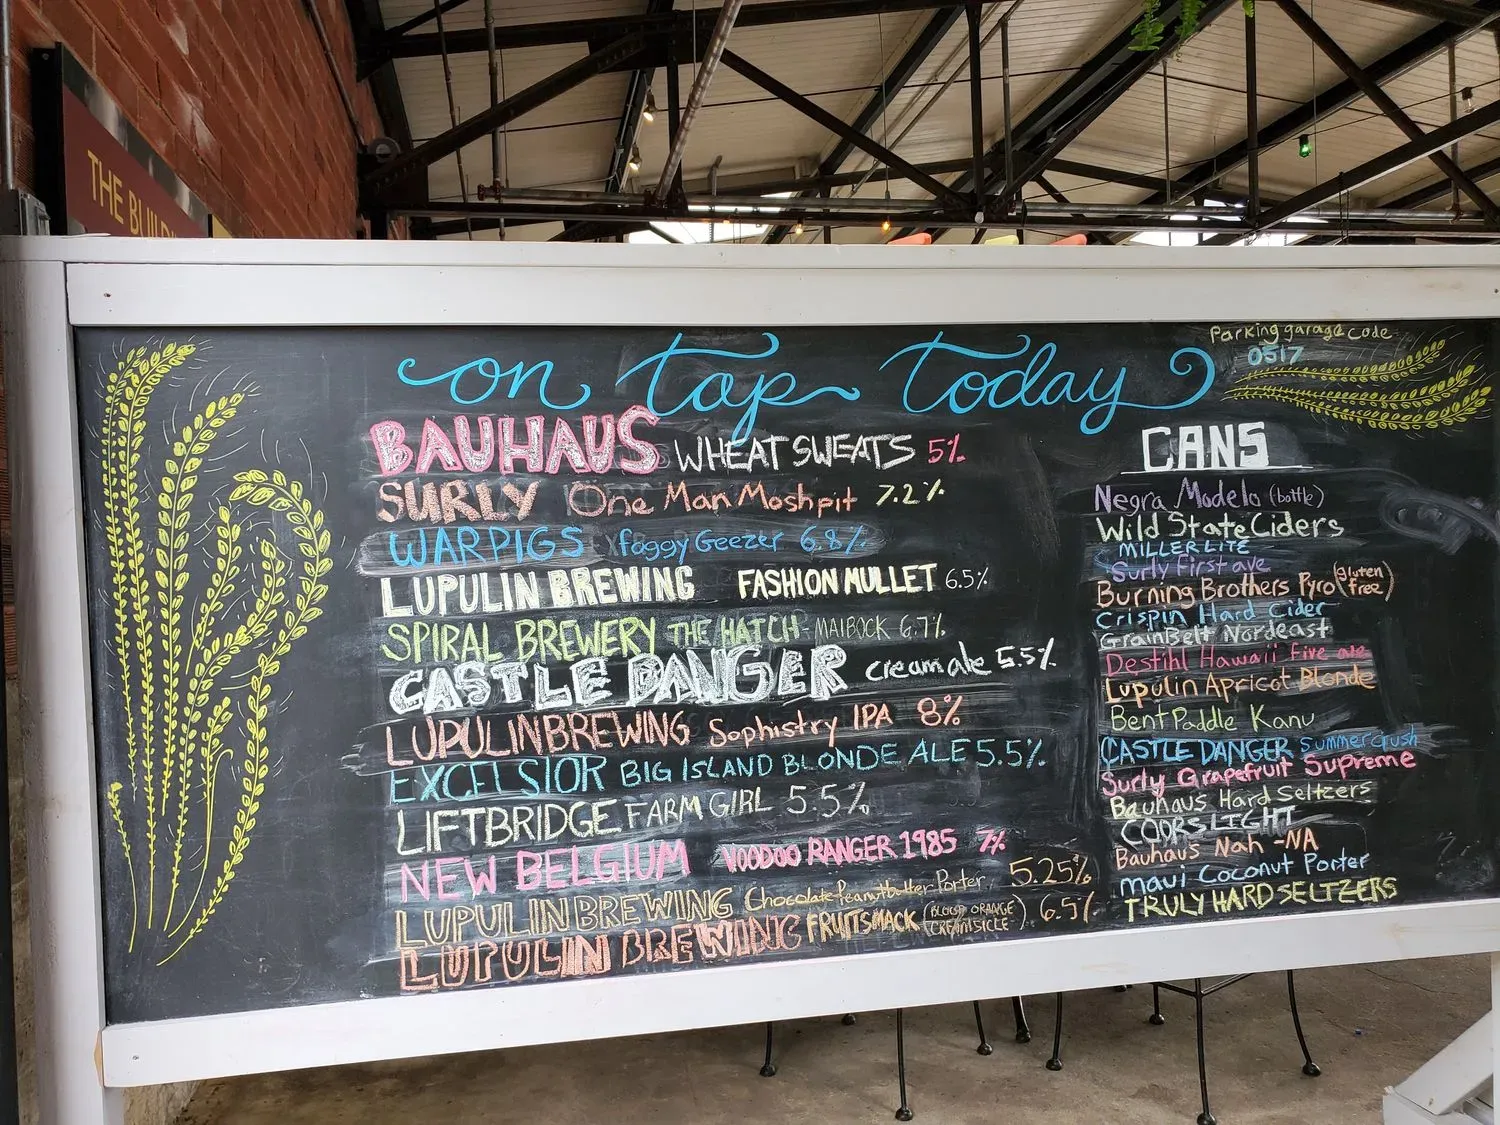 THE BUILD
on tap today
Parking garage code
0517
BAUHAUS WHEAT SWEATS 5%
SURLY One Man Moshpit 7.2%
WARPIGS foggy Geezer 6.8%
LUPULIN BREWING FASHION MULLET 6.5%
SPIRAL BREWERY THE HATCH - MAIBOCK 6.7%
CASTLE DANGER cream ale 5.5%
LUPULIN BREWING Sophistry IPA 8%
EXCELSIOR BIG ISLAND BLONDE ALE 5.5%
LIFTBRIDGE FARM GIRL 5.5%
NEW BELGIUM VOODOO RANGER 1985 7%
LUPULIN BREWING Chocolate Peanutbutter Porter 5.25%
LUPULIN BREWING FRUITSMACK (BLOOD ORANGE CREAMSICLE) 6.5%
CANS
Negra Modelo (bottle)
Wild State Ciders
MILLER LITE
Surly First ave
Burning Brothers Pyro (gluten free)
Crispin Hard Cider
GrainBelt Nordeast
Destihl Hawaii five ale
Lupulin Apricot Blonde
Bent Paddle Kanu
CASTLE DANGER Summer crush
Surly Grapefruit Supreme
Bauhaus Hard Seltzers
COORS LIGHT
Bauhaus Nah -NA
Maui Coconut Porter
TRULY HARD SELTZERS